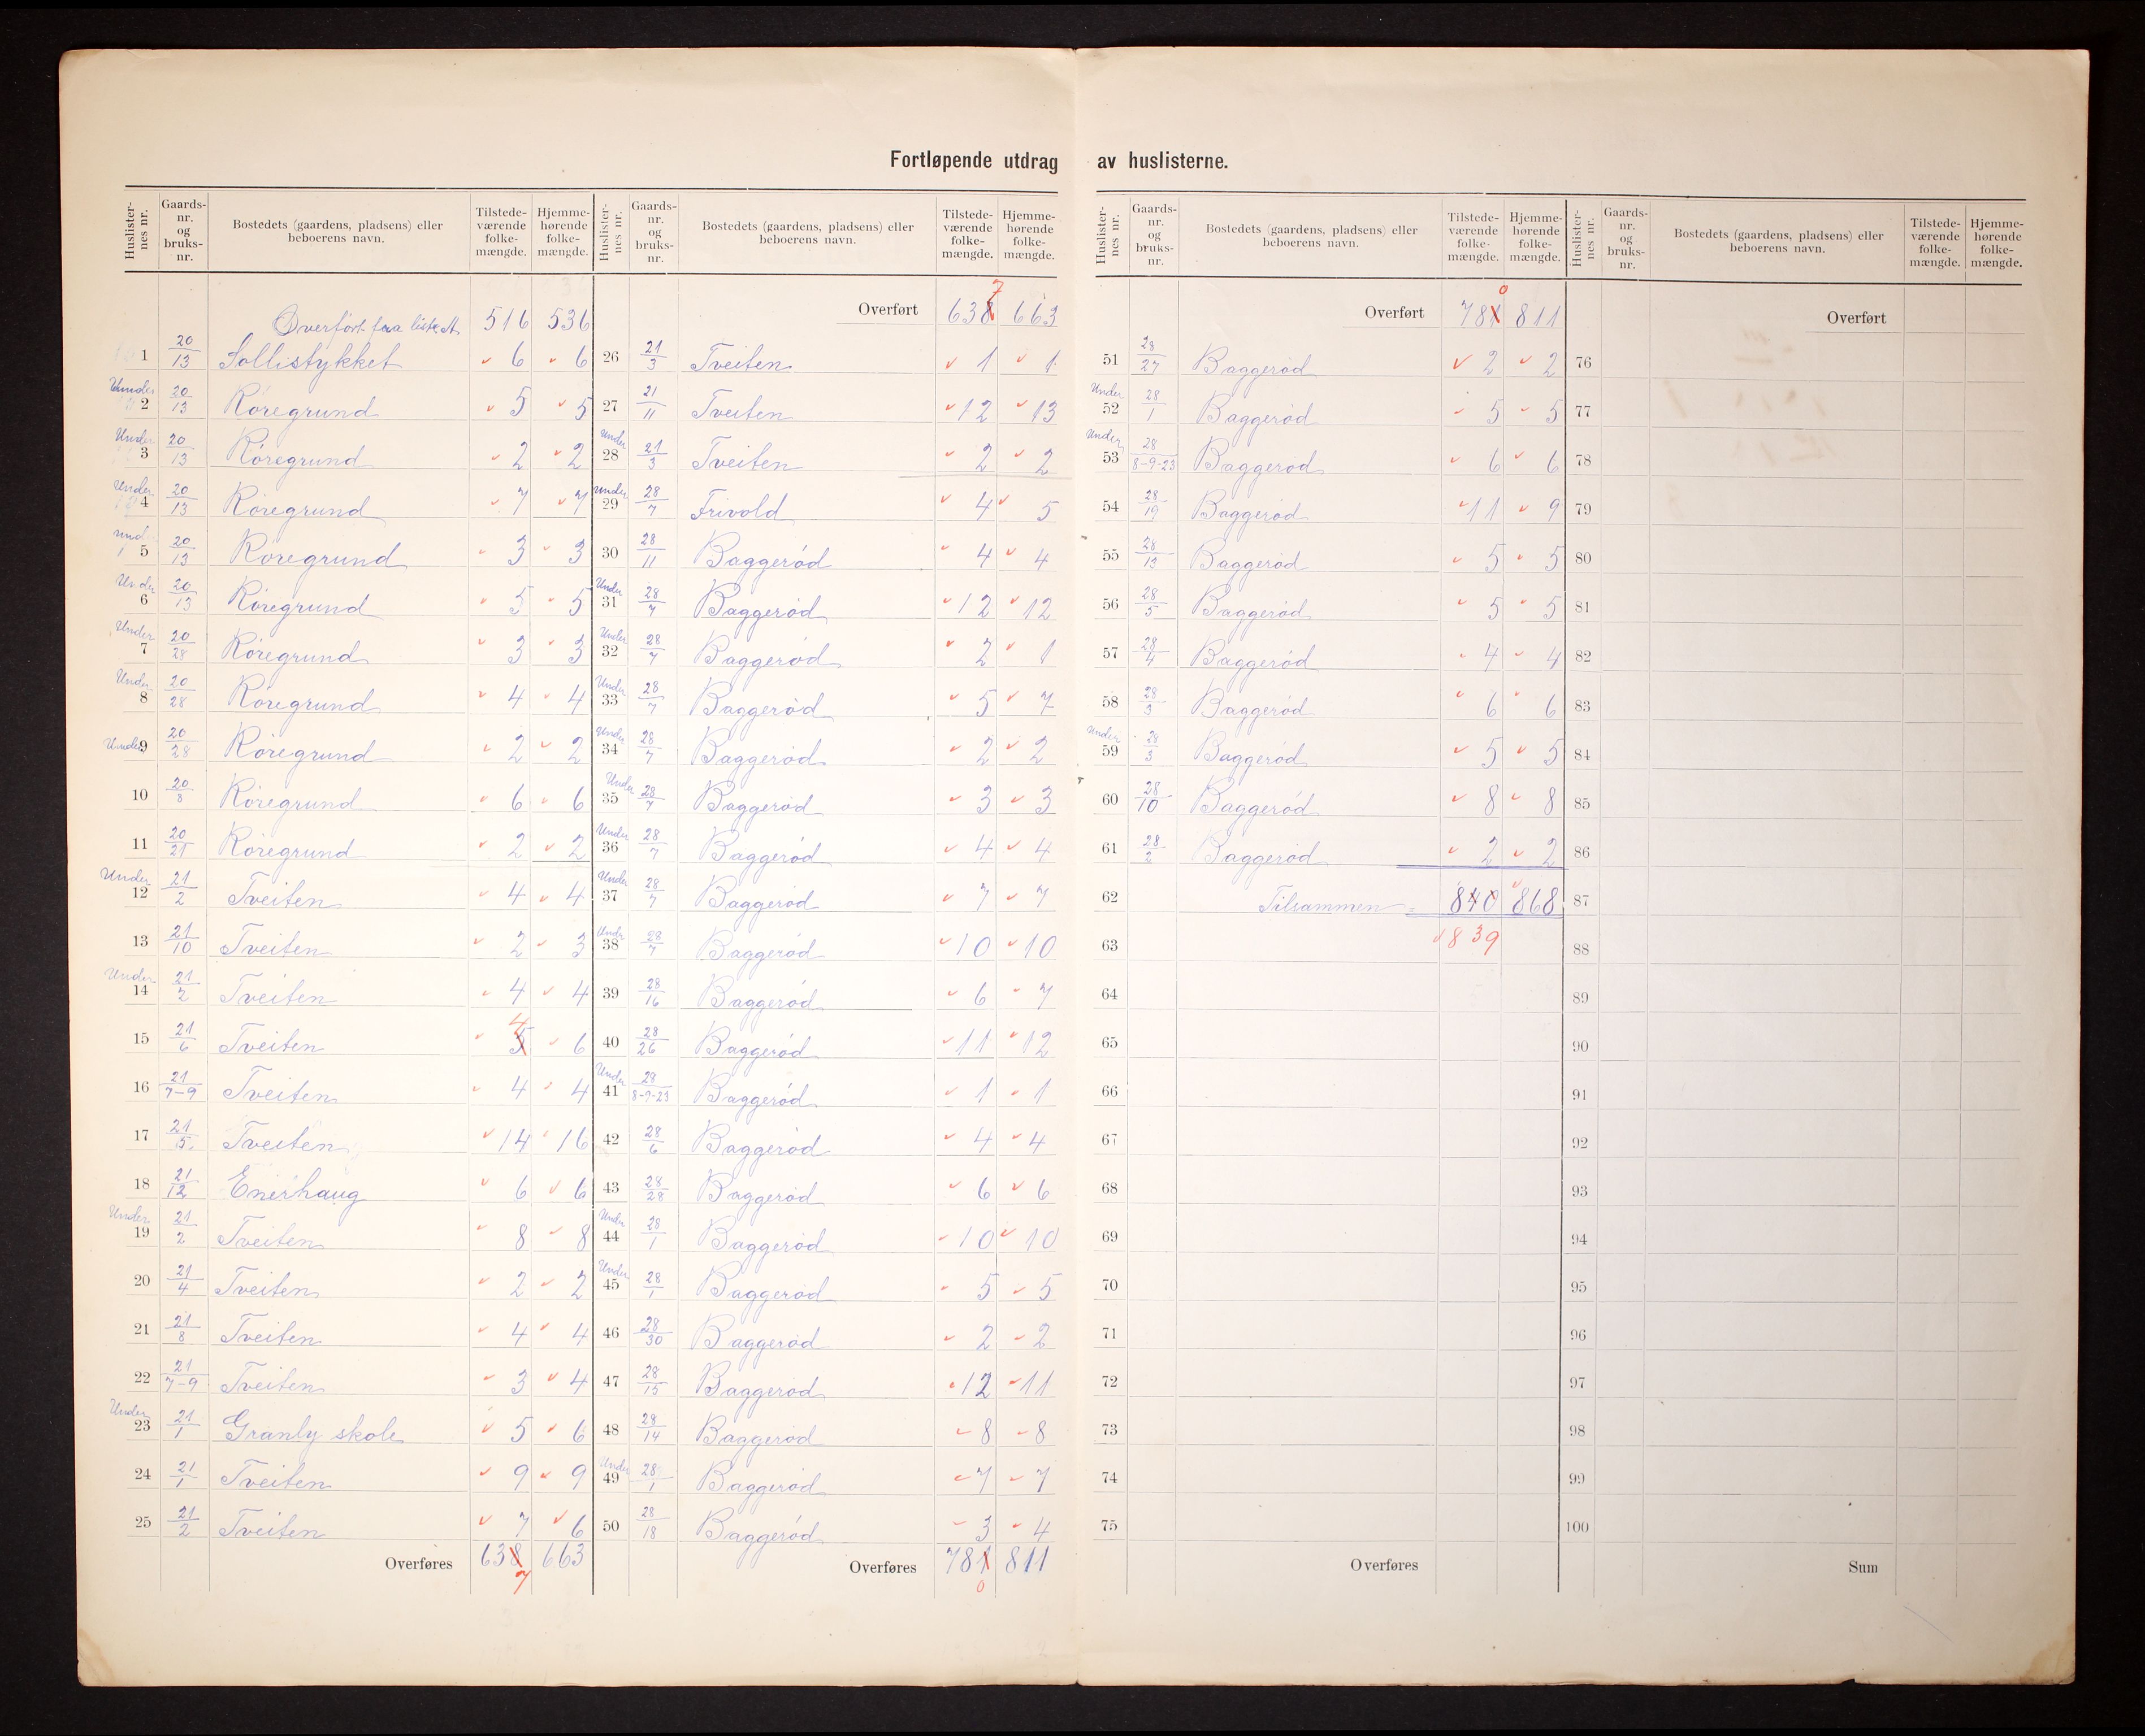 Fortløpende utdrag av huslisterne.
Huslisternes nr. Gaards-nr. og bruks-nr. Bostedets (gaardens, pladsens) eller beboerens navn. Tilstedeværende folkemængde. Hjemmehørende folkemængde.
Overført fra liste A. 516 536
1 20/13 Sollistykket 6 6
Under 2 20/13 Röregrund 5 5
Under 3 20/13 Röregrund 2 2
Under 4 20/13 Röregrund 7 7
und. 5 20/13 Röregrund 3 3
Under 6 20/13 Röregrund 5 5
Under 7 20/28 Röregrund 3 3
Under 8 20/28 Röregrund 4 4
Under 9 20/28 Röregrund 2 2
10 20/8 Röregrund 6 6
11 20/21 Röregrund 2 2
Under 12 21/2 Tveiten 4 4
13 21/10 Tveiten 2 3
Under 14 21/2 Tveiten 4 4
15 21/6 Tveiten 5 4 6
16 21/7-9 Tveiten 4 4
17 21/5 Tveiten 14 16
18 21/12 Enerhaug 6 6
Under 19 21/2 Tveiten 8 8
20 21/4 Tveiten 2 2
21 21/8 Tveiten 4 4
22 21/7-9 Tveiten 3 4
Under 23 21/1 Granly skole 5 6
24 21/1 Tveiten 9 9
25 21/2 Tveiten 7 6
Overføres 638 7 663
Huslisternes nr. Gaards-nr. og bruks-nr. Bostedets (gaardens, pladsens) eller beboerens navn. Tilstedeværende folkemængde. Hjemmehørende folkemængde.
Overført 638 7 663
26 21/3 Tveiten 1 1
27 21/11 Tveiten 12 13
Under 28 21/3 Tveiten 2 2
Under 29 28/7 Frivold 4 5
30 28/11 Baggeröd 4 4
Under 31 28/7 Baggeröd 12 12
Under 32 28/7 Baggeröd 2 1
Under 33 28/7 Baggeröd 5 7
Under 34 28/7 Baggeröd 2 2
Under 35 28/7 Baggeröd 3 3
Under 36 28/7 Baggeröd 4 4
Under 37 28/7 Baggeröd 7 7
Undr 38 28/7 Baggeröd 10 10
39 28/16 Baggeröd 6 7
40 28/26 Baggeröd 11 12
Under 41 28/8-9-23 Baggeröd 1 1
42 28/6 Baggeröd 4 4
43 28/28 Baggeröd 6 6
Under 44 28/1 Baggeröd 10 10
Under 45 28/1 Baggeröd 5 5
46 28/30 Baggeröd 2 2
47 28/15 Baggeröd 12 11
48 28/14 Baggeröd 8 8
Under 49 28/1 Baggeröd 7 7
50 28/18 Baggeröd 3 4
Overføres 781 0 811
Huslisternes nr. Gaards-nr. og bruks-nr. Bostedets (gaardens, pladsens) eller beboerens navn. Tilstedeværende folkemængde. Hjemmehørende folkemængde.
Overført 781 0 811
51 28/27 Baggeröd 2 2
Under 52 28/1 Baggeröd 5 5
Under 53 28/8-9-23 Baggeröd 6 6
54 28/19 Baggeröd 11 9
55 28/13 Baggeröd 5 5
56 28/5 Baggeröd 5 5
57 28/4 Baggeröd 4 4
58 28/3 Baggeröd 6 6
Under 59 28/3 Baggeröd 5 5
60 28/10 Baggeröd 8 8
61 28/2 Baggeröd 2 2
62 Tilsammen = 840 868
63 839
64
65
66
67
68
69
70
71
72
73
74
75
Overføres
Huslisternes nr. Gaards-nr. og bruks-nr. Bostedets (gaardens, pladsens) eller beboerens navn. Tilstedeværende folkemængde. Hjemmehørende folkemængde.
Overført
76
77
78
79
80
81
82
83
84
85
86
87
88
89
90
91
92
93
94
95
96
97
98
99
100
Sum